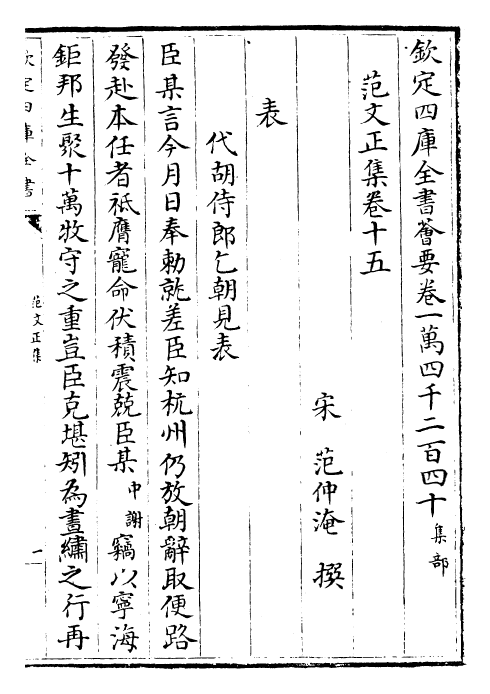 欽定四庫全書薈要卷一萬四千二百四十集部
范文正集卷十五
宋 范仲淹 撰
表
代胡侍郎乞朝見表
臣某言今月日奉勅就差臣知杭州仍放朝辭取便路
發赴本任者祗膺寵命伏積震兢臣某中謝竊以寧海
鉅邦生聚十萬牧守之重豈臣克堪矧為晝繡之行再
欽定四庫全書
范文正集
一